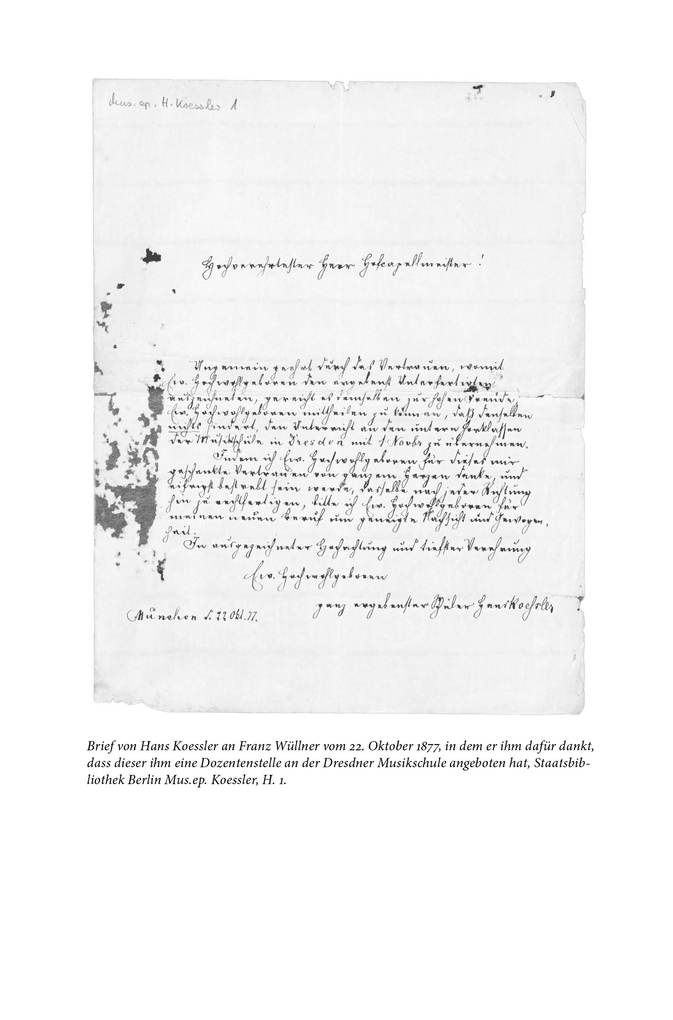 Mus. ep. H. Koessler 1
Hochverehrtester Herr Hofcapellmeister!
Ungemein geehrt durch das Vertrauen, womit
Ew. Hochwohlgeboren den ergebenst Unterfertigten
auszeichneten, gereicht es demselben zur hohen Freude,
Ew. Hochwohlgeboren mittheilen zu können, daß denselben
nichts hindert, den Unterricht an den untern Chorklassen
der Musikschule in Dresden mit 1 Novbr zu übernehmen.
Indem ich Ew. Hochwohlgeboren für dieses mir
geschenkte Vertrauen von ganzem Herzen danke, und
eifrigst bestrebt sein werde, dasselbe nach jeder Richtung
hin zu rechtfertigen, bitte ich Ew. Hochwohlgeboren für
meinen neuen Beruf um geneigte Nachsicht und Gewogen-
heit.
In ausgezeichneter Hochachtung und tiefster Verehrung
Ew. Hochwohlgeboren
ganz ergebenster Schüler Hans Koessler
München d. 22 Okt. 77.
Brief von Hans Koessler an Franz Wüllner vom 22. Oktober 1877, in dem er ihm dafür dankt,
dass dieser ihm eine Dozentenstelle an der Dresdner Musikschule angeboten hat, Staatsbib-
liothek Berlin Mus.ep. Koessler, H. 1.